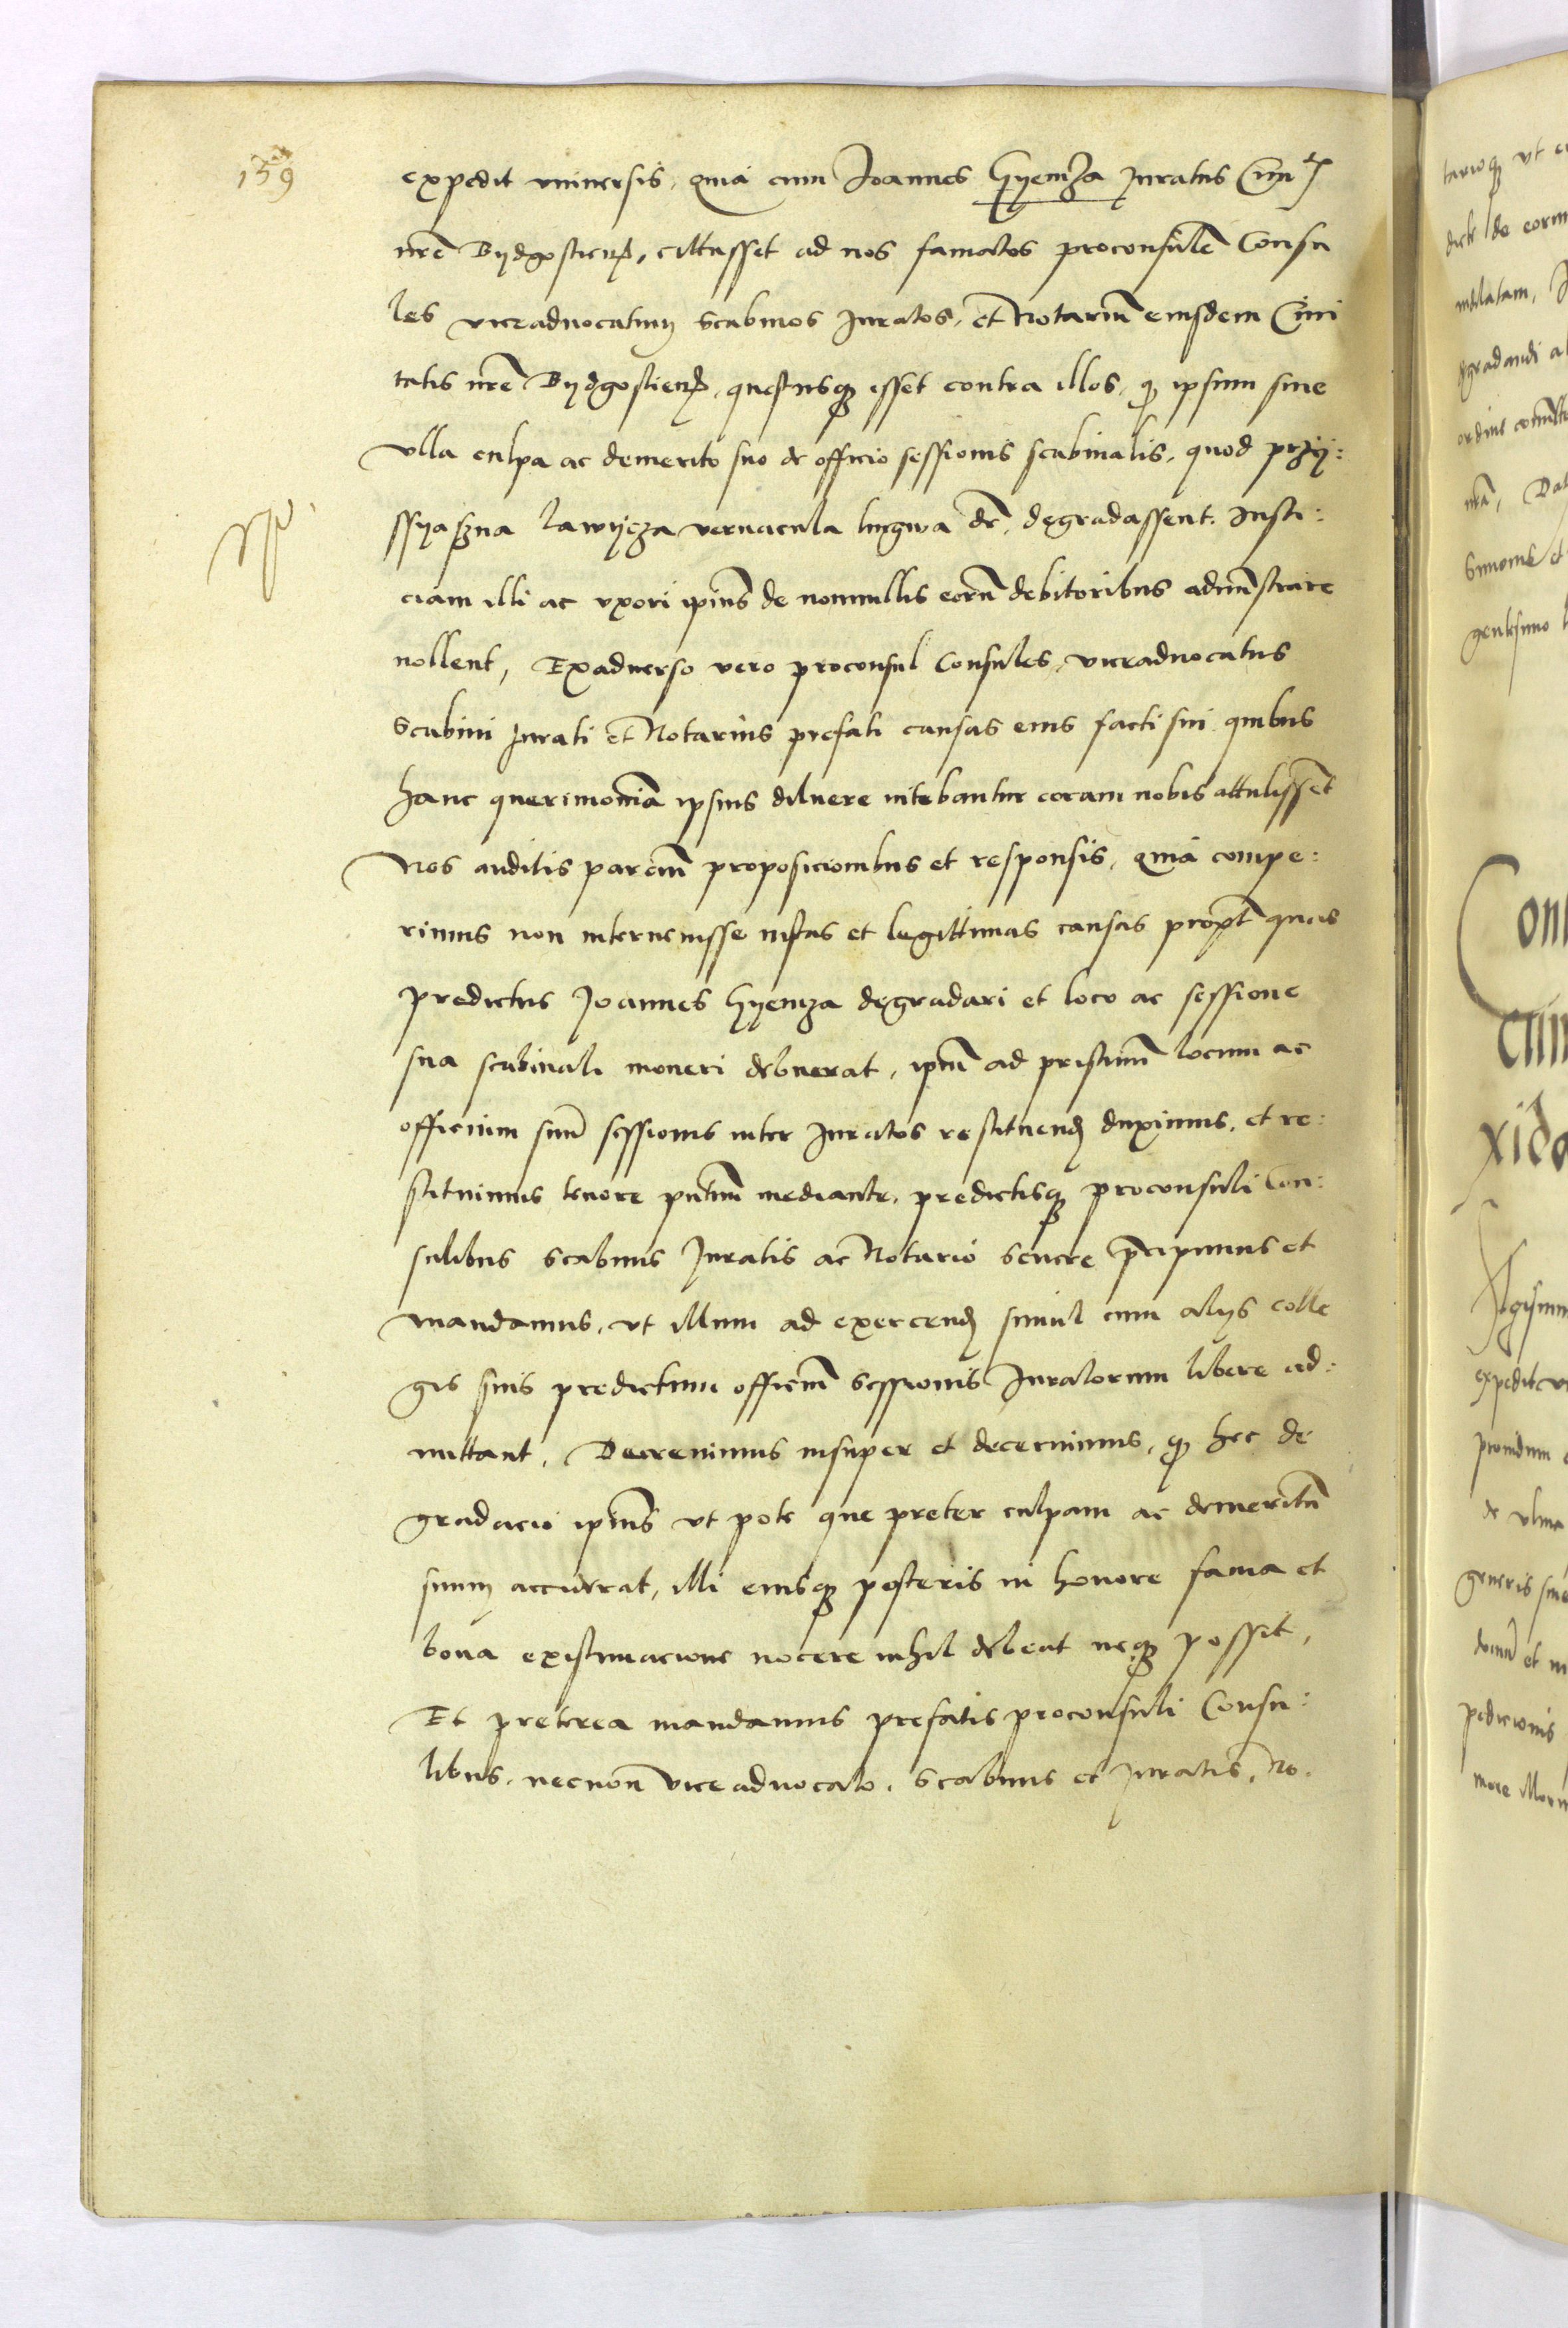 159
expedit vniuersis, quia cum Joannes Gyemza Juratus Ciuitatis
nrē Bydgostien̄, cittasset ad nos famatos proconsulē Consu
les viceaduocatum scabinos Juratos, et Notariū eiusdem Ciui
tatis nrē Bydgostien̄, questusq̨ esset contra illos, q̨ ipsum sine
vlla culpa ac demerito suo de officio sessionis scabinalis, quod przy:
ssyaszna lawycza vernacula lingwa dr̄, degradassent. Justi:
ciam illi ac vxori ipius de nonnullis eorū debitoribus adminstrare
nollent, Exaduerso vero proconsul Consules, viceaduocatus
Scabini Jurati et Notarius prefati causas eius facti sui quibus
hanc querimoniā ipsius diluere nitebantur coram nobis attulissēt
Nos auditis parciū proposicionibus et responsis, quia compe:
rimus non interuenisse iustas et legittimas causas propt̄ quas
predictus Joannes Gyemza degradari et loco ac sessione
sua scabinali moueri debuerat, ipm̄ ad pristinū locum ac
officium suū sessionis inter Juratos restituend̄ duximus, et re:
stituimus tenore pn̄tium mediante, predictisq̨ proconsuli Con:
sulibus scabinis Juratis ac Notario seuere p̄cipimus et
mandamus, vt illum ad exercend̄ simul cum alijs colle
gis suis predictum officiū sessionis Juratorum libere ad:
mittant, Decreuimus insuper et decernimus, q̨ hec de
gradacio ipius vt pote que preter culpam ac demeritū
suum accurrat, illi eiusq̨ posteris in honore fama et
bona existimacione nocere nihil debeat neq̨ possit,
Et preterea mandamus prefatis proconsuli Consu:
libus, necnon vice aduocato, scabinis et Juratis, No.